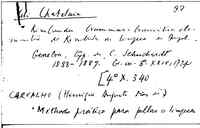 Héli Chatelain 97
Kimbundu Grammar. Grammatica elementar do Kimbundu ou lingua de Angola.
Genebra, Typ. de C. Schuchardt
1888-1889.
[4º X. 340
CARVALHO (Henrique Augusto Dias de)
Methodo pratico para fallar a lingua